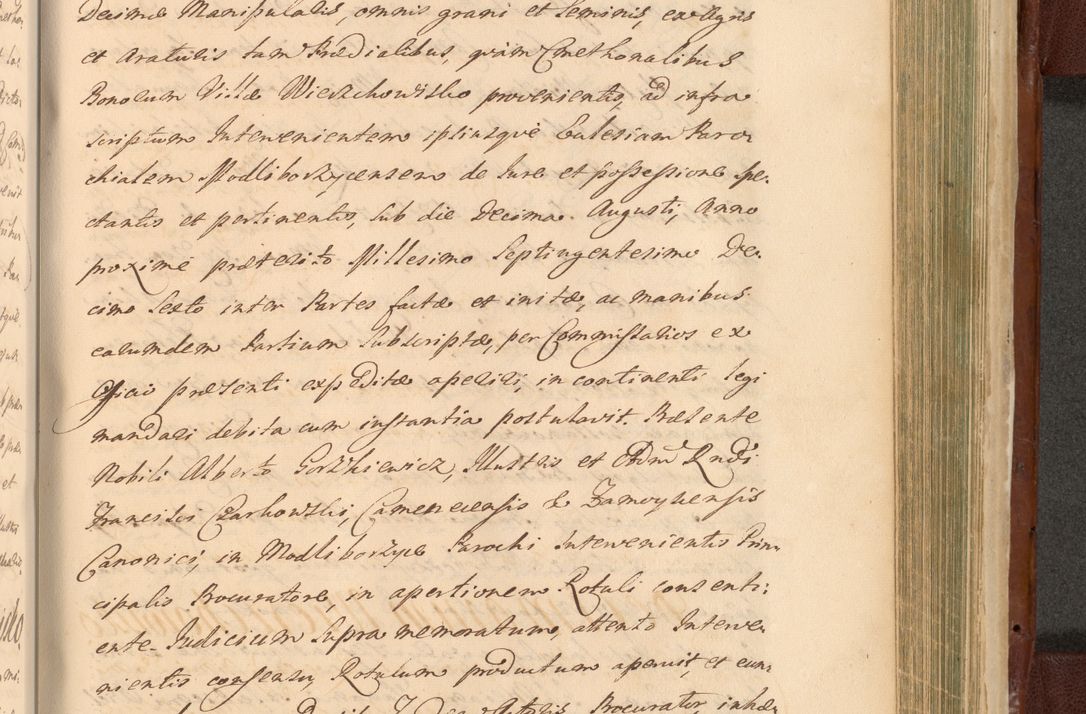 Decimæ Manipularis, omnis grani et Seminis, ex Agris
et Araturis tam Prædialibus, quàm Cmethonalibus
Bonorum Villæ Wierzchowisko provenientis, ad infra
scriptum Intervenientem ipsiusquè Ecclesiam Paro
chialem Modliborzycensem de Jure et possessione spe-
ctantis et pertinentis, sub die Decima Augusti, Anno
proximè præterito Millesimo Septingentesimo De-
cimo Sexto inter Partes factæ et initæ, ac manibus
earumdem Partium subscriptæ, per Commissarios ex
officio præsenti expeditæ aperiri, in continenti legi
mandari debita cum instantia postulavit. Præsente
Nobili Alberto Gorzkiewicz, Illustris et Adm Rndi
Francisci Czarkowski, Camenecensis & Zamoycensis
Canonici, in Modliborzyce Parochi Intervenientis Prin-
cipalis Procuratore, in apertionem Rotuli consenti-
ente. Judicium supra memoratum, attento Interve-
nientis consensu, Rotulum productum aperuit, et eun-
Actoris Procurator, inhæ-